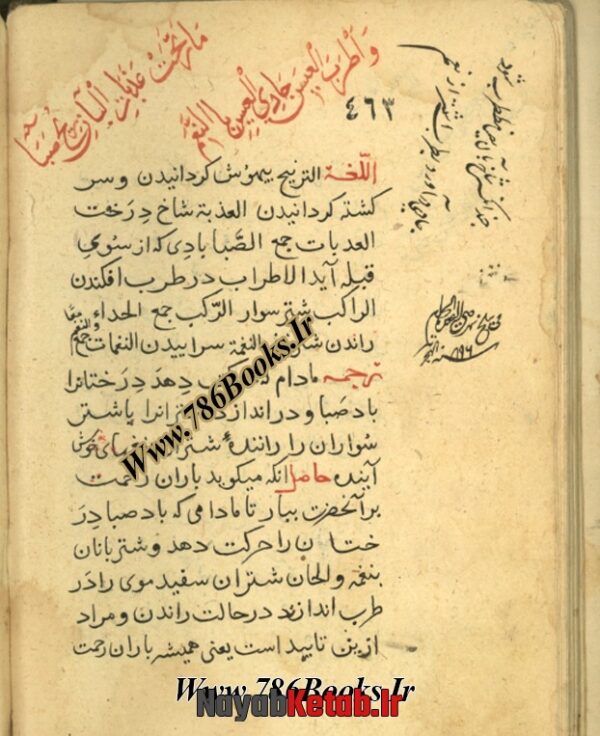 ما رنحت عذبات البان ریح صبا
و أطرب العیس حادی العیس بالنغم
٤٦٣
اللغة الترنیح بیهوش کردانیدن و سر
کشته کردانیدن العذبة شاخ درخت
العذبات جمع الصَّبا بادی که از سوی
قبله آید الاطراب در طرب افکندن
الراکب شتر سوار الرّکب جمع الحداء
راندن شتر النغمة سراییدن النغمات جمع
ترجمه مادام که دهد درختانرا
باد صبا و در اندازد شترانرا یا شتر
سواران را رانندهٔ شتران خوش
آینده حاصل آنکه میکوید باران رحمت
بر آنحضرت ببار تا مادامی که باد صبا در
ختان را حرکت دهد و شتربانان
بنغمه و الحان شتران سفید موی را در
طرب اندازند در حالت راندن و مراد
ازین تایید است یعنی همیشه باران رحمت
Www.786Books.Ir
Www.786Books.Ir
NayabKetab.Ir